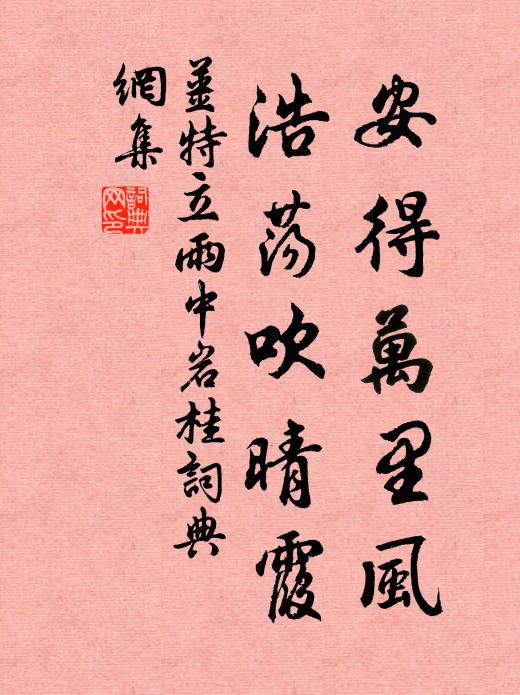 安得萬里風
浩蕩吹晴霞
薑特立雨中岩桂詞典
網集
詞典
网印